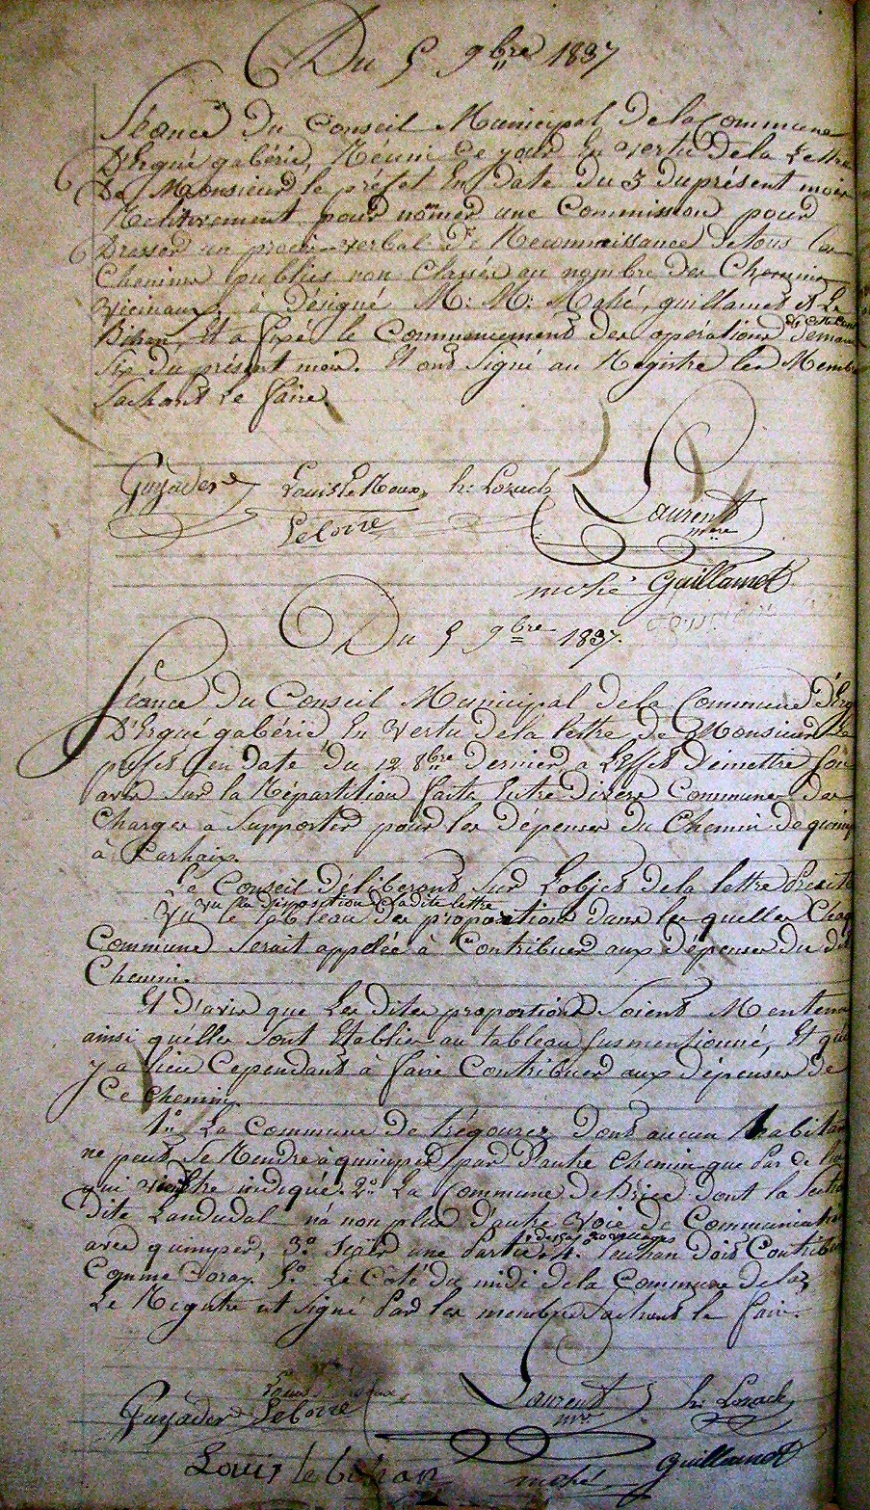 Du 5 9bre 1837
Séance Du Conseil Municipal De la Commune
D'Ergué gabéric, Réuni Ce jour En vertu de la Lettre
De Monsieur le préfet En date du 3 du présent mois
Relativement pour nommer une Commission pour
Dresser un procès-verbal de Reconnaissance De tous les
Chemins publics non Classés au nombre des Chemins
Vicinaux, à désigné M: M: Mahé, guillamet et Le
Bihan, Et a fixé le Commencement des opérations
Six du présent mois. Et ont Signé au Registre les Memb
Sachant Le faire.
Guyader Louis Le Roux h: Lozach Laurent
Lelorre mre
mahé Guillamet
Du 5 9bre 1837.
Séance Du Conseil Municipal de la Commune d'Erg
D'Ergué gabéric En Vertu de la lettre de Monsieur Le
préfet en date du 12 8bre dernier a L'Effet D'émettre Son
avis Sur la Répartition faite Entre Divers Communes des
Charges a Supporter pour les dépenses du Chemin de quimp
à Carhaix.
Le Conseil Délibérant Sur L'objet de la lettre Précité
vu la disposition de la dite lettre
Vu le tableau des proportions dans les quelles Chaq
Commune Serait appellée à Contribuer aux dépenses du dit
Chemin.
Et d'avis que Les dites proportions Soient Mentenu
ainsi qu'elles Sont Etablies au tableau Susmentionné, Et qu'il
y a lieu Cependant à faire Contribuer aux dépenses de
Ce Chemin,
1º La Commune de trégourez Dont aucun habitan
ne peut Se Rendre à quimper par D'autre Chemin que Par
qui indiqué. 2º La Commune De Briec dont la Secti
dite Landudal n'a non plus d'autre Voie de Communicati
avec quimper, 3º une Partie 4. Leuhan doit Contribu
Comme Coray. 5º Le Côté du midi de la Commune de
Le Registre est Signé Par les membres Sachant le faire.
Guyader Lelorre Laurent h: Lozach
mre
Louis le bihan mahé guillamet